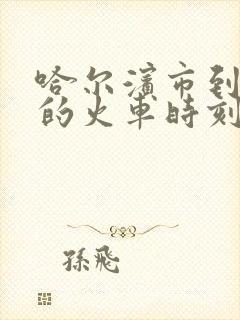 哈尔濱市到
的火車時刻
孫飛